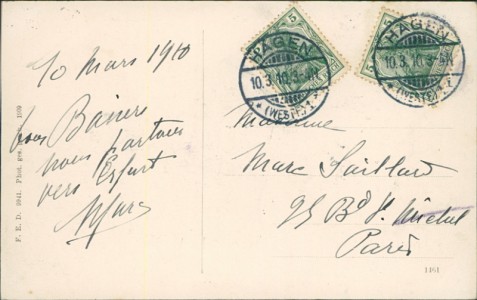 10 Mars 1910
bons Baisers
nous partons
vers Erfurt
Marc
F. E. D. 1909
5
HAGEN
10.3.10.3-4N
*(WESTF.)*
5
HAGEN
10.3.10.3-4N
(WESTF.)
Madame
Marc Saillard
95 Bd St Michel
Paris
1161